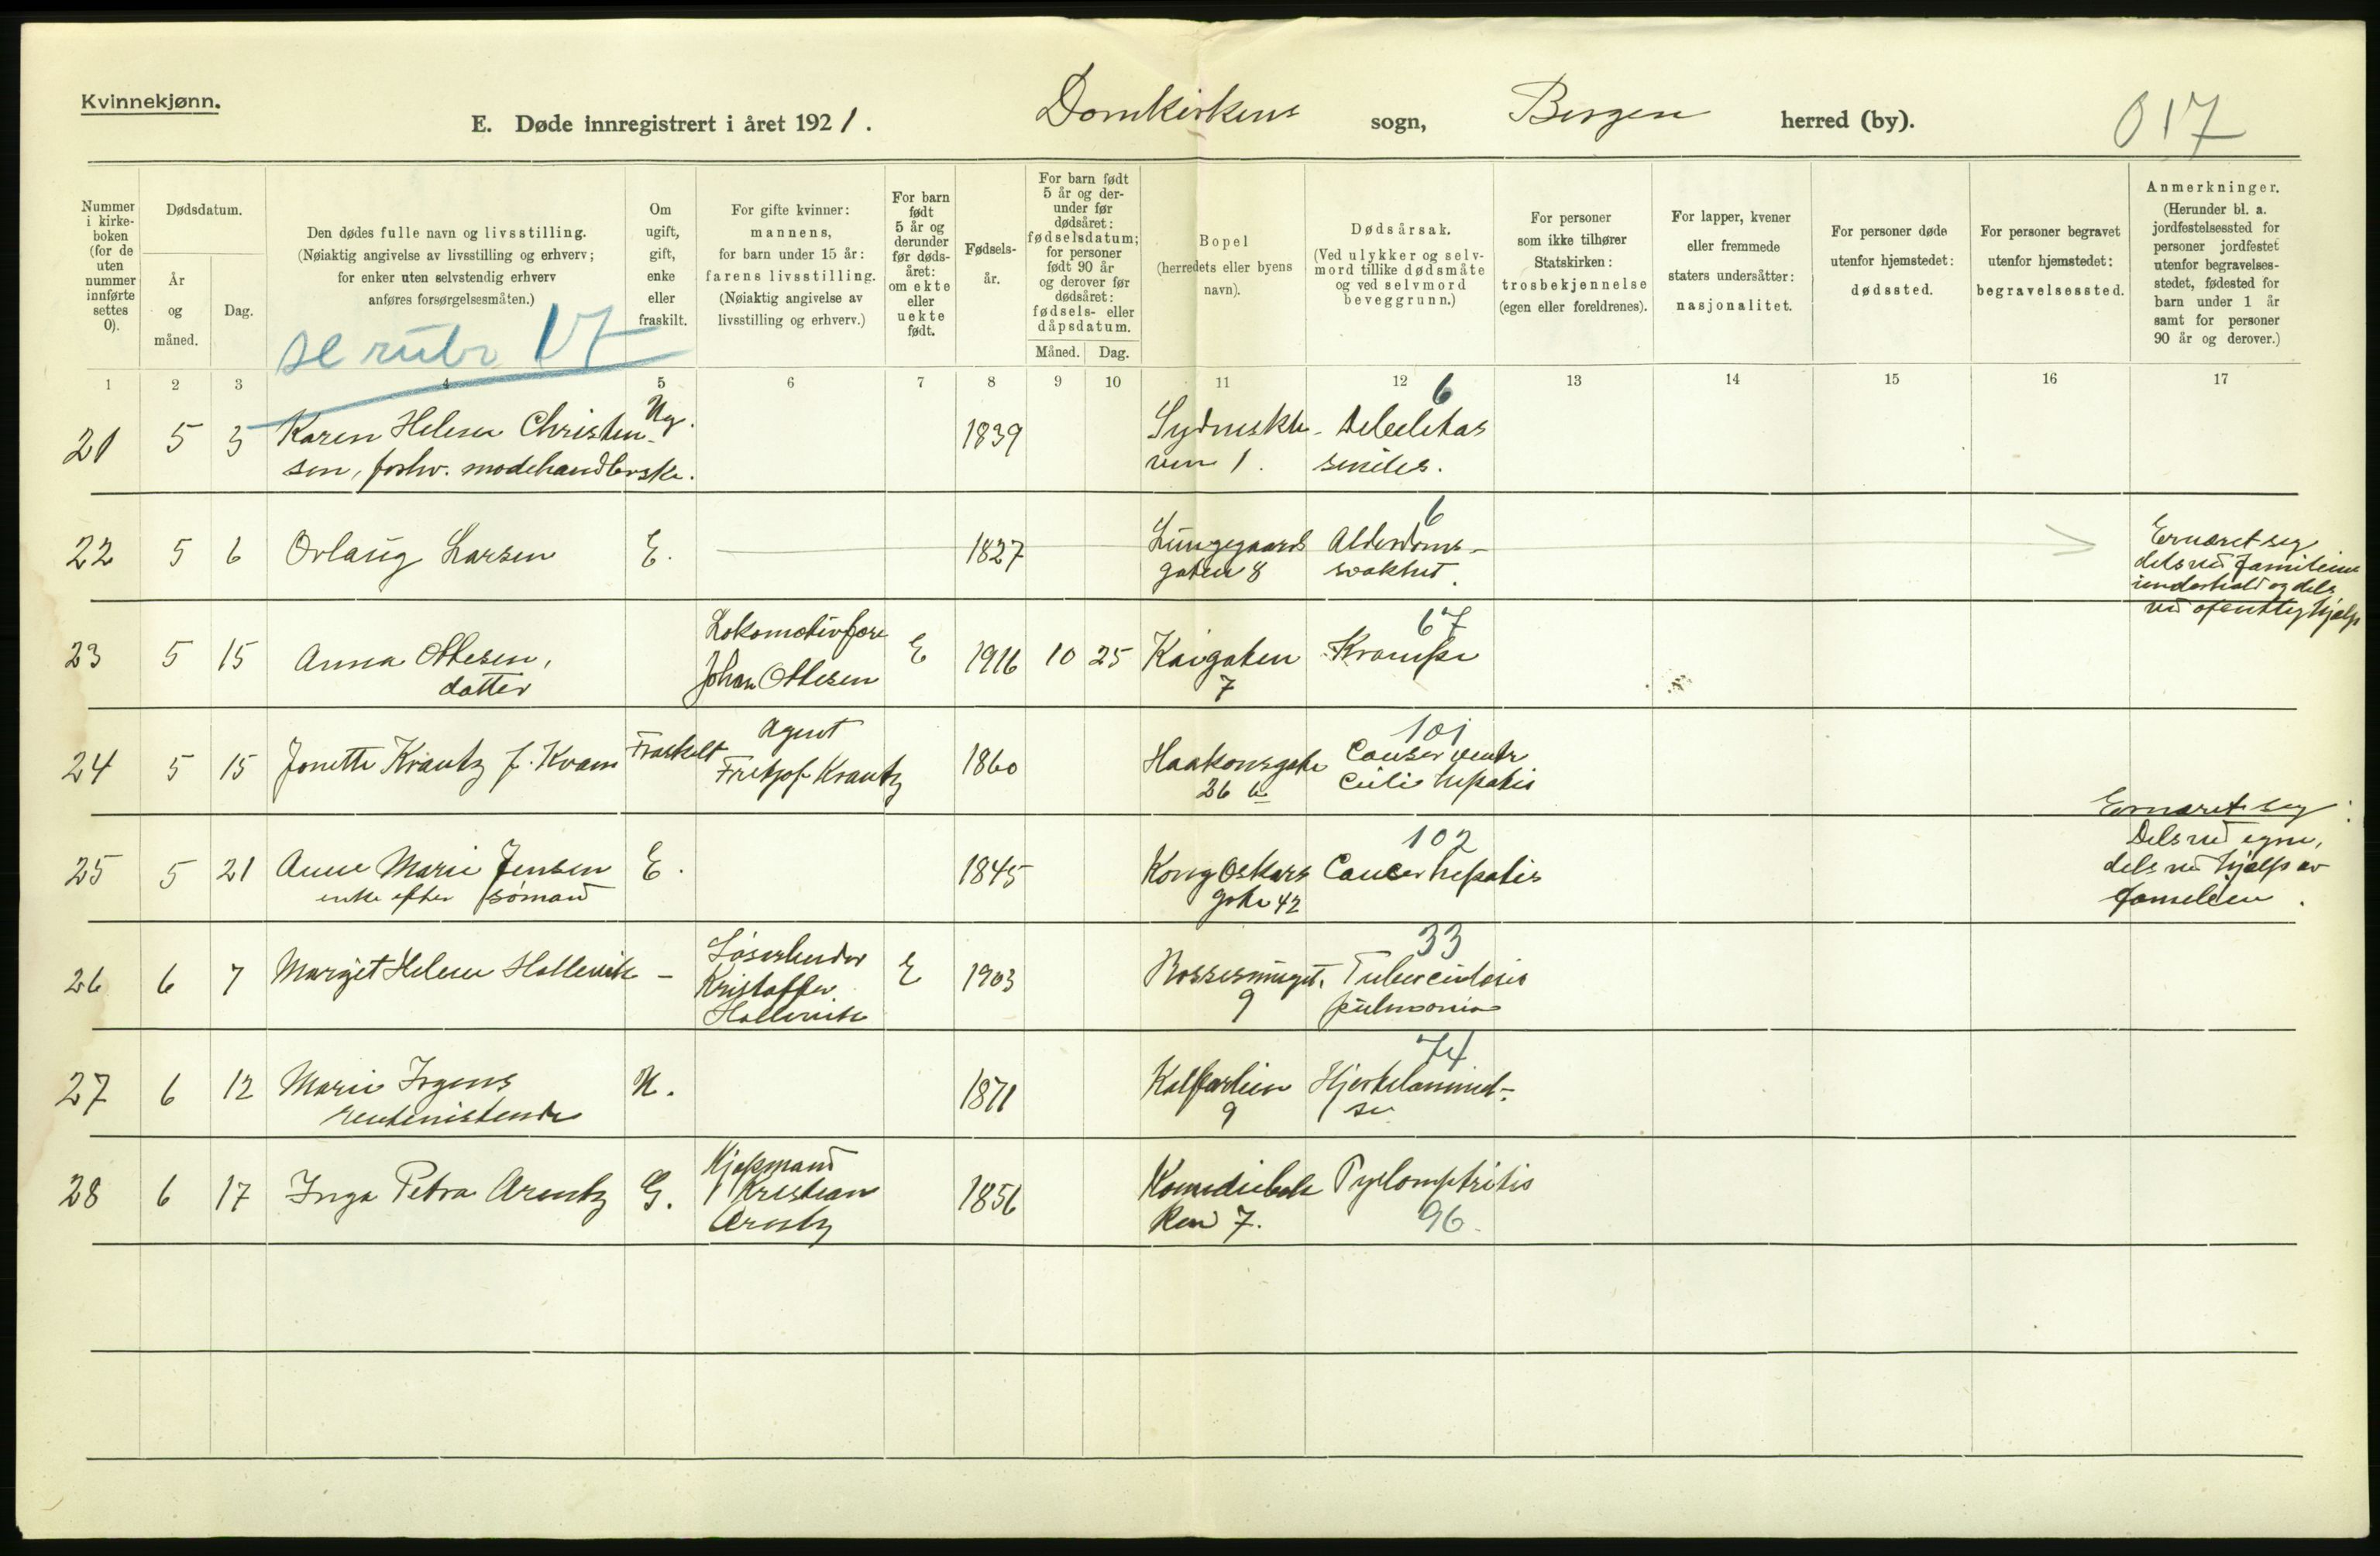 Kvinnekjønn.
E. Døde innregistrert i året 1921. Domkirkens sogn, Bergen herred (by). 017
Nummer i kirke-boken (for de uten nummer innførte settes 0).
Dødsdatum.
År og måned.
Dag.
Den dødes fulle navn og livsstilling.
(Nøiaktig angivelse av livsstilling og erhverv;
for enker uten selvstendig erhverv
anføres forsørgelsesmåten.)
se rubr 17
Om ugift, gift, enke eller fraskilt.
For gifte kvinner:
mannens,
for barn under 15 år:
farens livsstilling.
(Nøiaktig angivelse av
livsstilling og erhverv.)
For barn født 5 år og derunder før døds-året: om ekte eller uekte født.
Fødsels-år.
For barn født 5 år og der-under før dødsåret: fødselsdatum; for personer født 90 år og derover før dødsåret: fødsels- eller dåpsdatum.
Måned. Dag.
Bopel
(herredets eller byens
navn).
Dødsårsak.
(Ved ulykker og selv-
mord tillike dødsmåte
og ved selvmord
beveggrunn.)
For personer
som ikke tilhører
Statskirken:
trosbekjennelse
(egen eller foreldrenes).
For lapper, kvener
eller fremmede
staters undersåtter:
nasjonalitet.
For personer døde
utenfor hjemstedet:
dødssted.
For personer begravet
utenfor hjemstedet:
begravelsessted.
Anmerkninger.
(Herunder bl. a.
jordfestelsessted for
personer jordfestet
utenfor begravelses-
stedet, fødested for
barn under 1 år
samt for personer
90 år og derover.)
1 2 3 4 5 6 7 8 9 10 11 12 13 14 15 16 17
21 5 3 Karen Helene Christen- Ug. 1839 6
sen, forhv. modehandlerske. 1. seniles.
22 5 6 Orlaug Larsen E. 1827 Lungegaards Alderdoms- 6
gaten 8 svakhet.
Ernæret seg
dels ved familiens
underhold og dels
ved ofentlig hjelp
23 5 15 Anna Ottesen, Lokomotivfører E 1916 10 25 Kaigaten Krampe 67
datter Johan Ottesen 7
24 5 15 Jonette Krantz f. Kvam Fraskilt Agent 1860 Haakonsgate Cancer 101
Fritjof Krantz 26 hepatis
25 5 21 Anne Marie Jensen E. 1845 Kong Oskars Cancer hepatis 102
enke efter sømand gate 42
Ernæret seg
dels ved egne,
dels ved hjelp av
familien.
26 6 7 Margit Helene Hollevik - Kristoffer Hollevik E 1903 9 Tuberculosis pulmonis 33
27 6 12 Marie Irgens U. 1871 Kalfarlien Hjertelammel- 74
rentenistende 9 se
28 6 17 Inga Petra Arentz G. Kjøpmand 1856 Komediebak Pyelonephritis
Kristian ken 7. 96.
Arentz